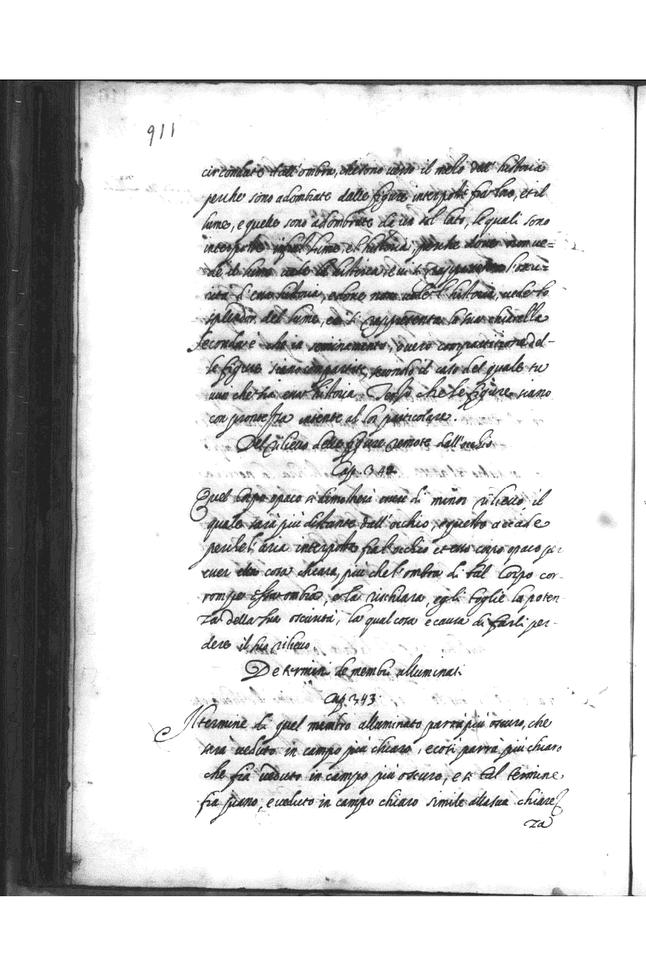 911
circondate dall'ombra, che sono verso il mezo dell'historia
perche sono adombrate dalle figure interposte fra loro, et il
lume, e quelle sono adombrate da un tal lato, le quali sono
interposte infra'l lume, e l'historia, perche dove non ve-
de il lume vede la historia, e vi si rappresenta l'oscu-
rità d'essa historia, e dove non vede l'historia, vede lo
splendor del lume, e vi si rappresenta la sua chiarezza
Seconda è che la seminamento, overo compartitione del-
le figure siano compartite, secondo il caso del quale tu
vuoi che sia essa historia. Terza che le figure siano
con prontezza intente al lor particolare.
Del rilievo delle figure remote dall'occhio
Cap. 342
Quel corpo opaco si dimostrerà essere di minor rilievo, il
quale sarà più distante dall'occhio, e questo accade
perche l'aria interposta fra l'occhio et esso corpo opaco per
esser cosa chiara, più che l'ombra di tal corpo cor-
rompe essa ombra, e la rischiara, e gli toglie la poten-
za della sua oscurità, la qual cosa è causa di farli per-
dere il suo rilievo
De termini de membri alluminati
Cap. 343
Il termine di quel membro alluminato parrà più oscuro, che
sarà veduto in campo più chiaro, e così parrà più chiaro
che fia veduto in campo più oscuro, e se tal termine
fia piano, e veduto in campo chiaro simile alla sua chiarez
za